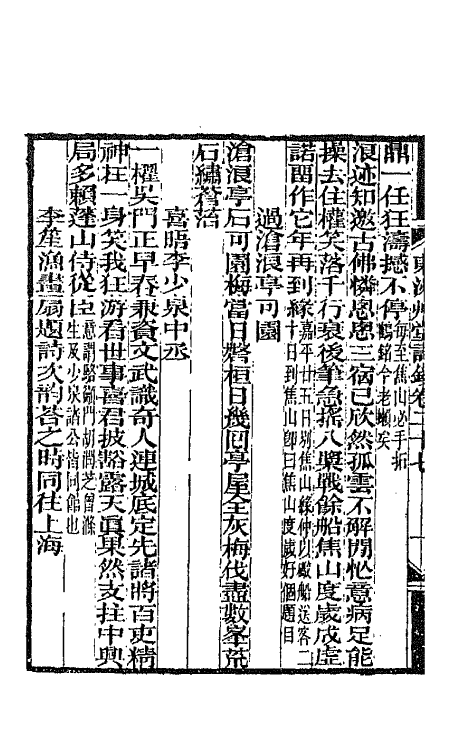 東洲艸堂詩鈔卷二十七
鼎一任狂濤撼不停每至焦山必手拆鶴銘今老嬾矣
浪迹知邀古佛憐恩恩三宿已欣然孤雲不解閒忙意病足能
操去住權笑落千行哀後筆急搖八槳戰餘船焦山度歲成虛
諾留作它年再到緣嘉平廿五日到焦山緣仲以礮船送客二十日到焦山卽曰焦山度歲好個題目
過滄浪亭可園
滄浪亭后可園梅當日磐桓日幾回亭屋全灰梅伐盡數峯荒
石繡蒼苔
喜晤李少泉中丞
一權吳門正早春兼資文武識奇人連城底定先諸將百吏精
神在一身笑我狂游看世事喜君披豁露天眞果然支拄中興
局多賴蓬山侍從臣意謂駱籲門胡潤芝曾滌生及少泉諸公皆同館也
李笙漁畫扇題詩次韵荅之時同往上海